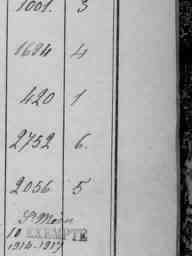 1001. 3
1684 4
420 1
2752 6.
2056 5
St
10 EXEMPTÉ
1914-1917